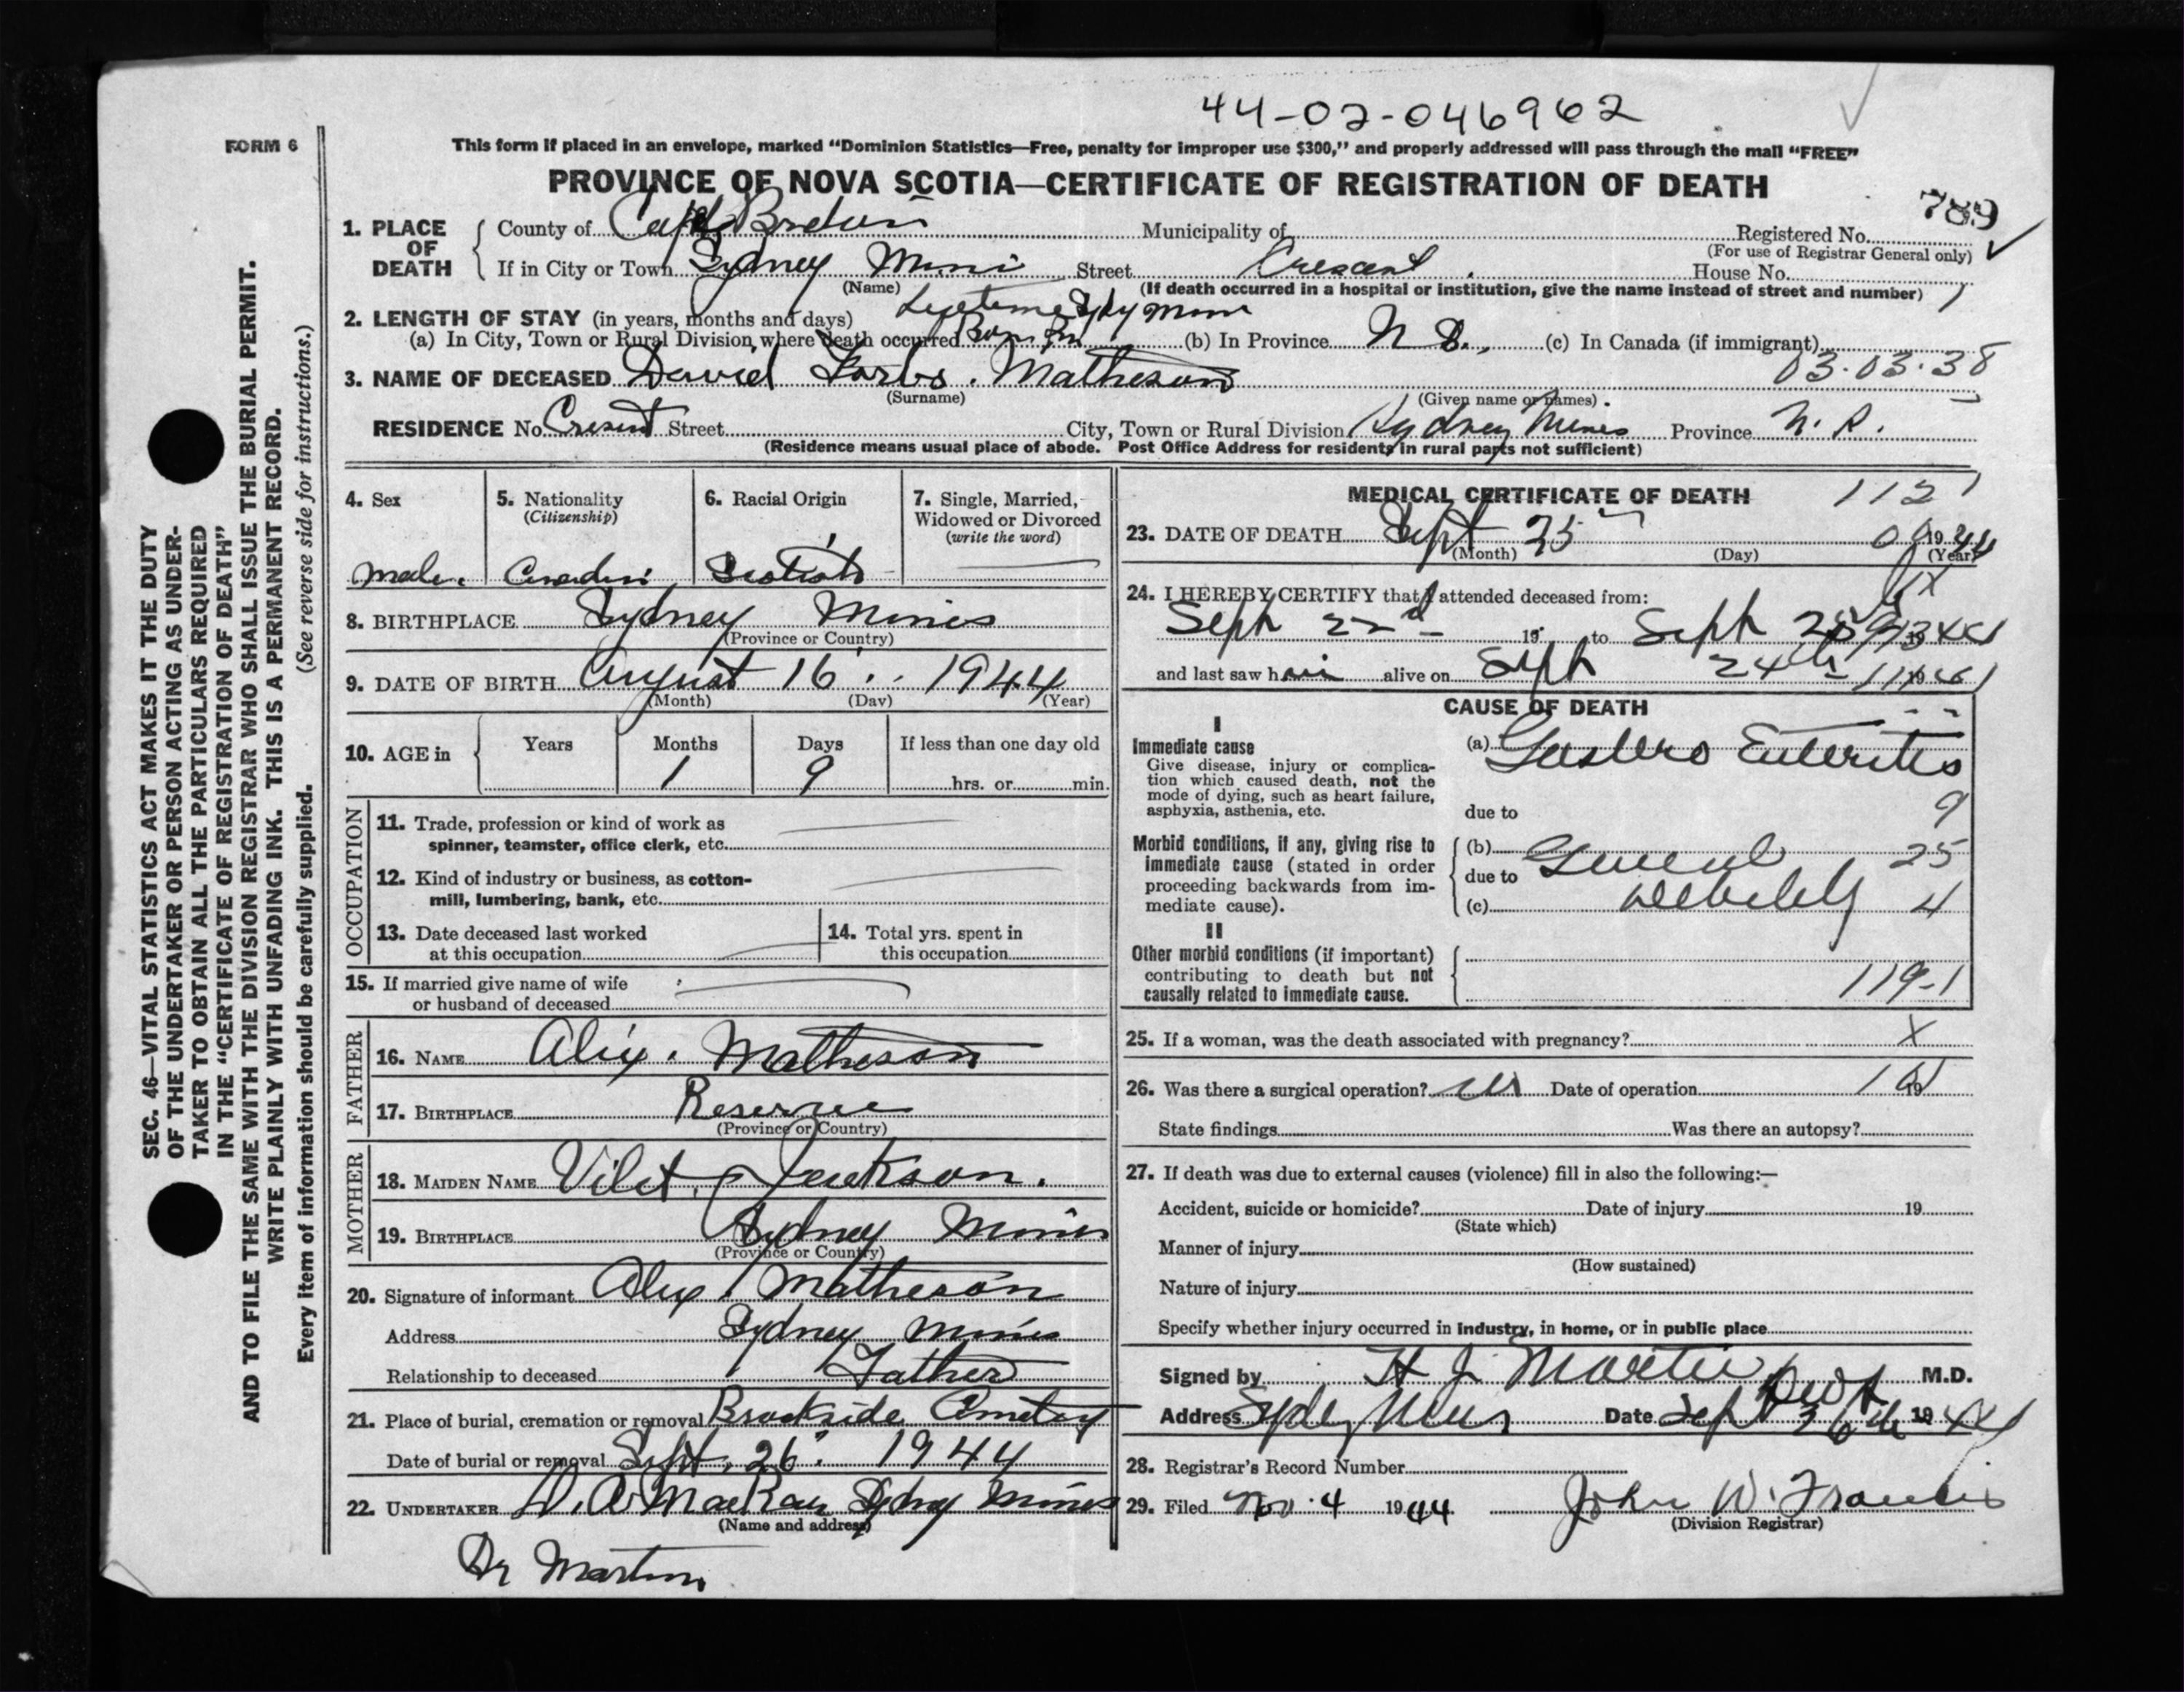 44-02-046962
FORM 6
This form if placed in an envelope, marked "Dominion Statistics—Free, penalty for improper use $300," and properly addressed will pass through the mail "FREE"
PROVINCE OF NOVA SCOTIA—CERTIFICATE OF REGISTRATION OF DEATH
789
1. PLACE OF DEATH County of Cape Breton Municipality of Registered No.
(For use of Registrar General only)
If in City or Town Sydney Mines Street Crescent House No.
(Name) (If death occurred in a hospital or institution, give the name instead of street and number)
2. LENGTH OF STAY (in years, months and days)
(a) In City, Town or Rural Division where death occurred (b) In Province N S. (c) In Canada (if immigrant)
03.03.38
3. NAME OF DECEASED David Forbs. Matheson
(Surname) (Given name or names)
RESIDENCE No. Cresent Street City, Town or Rural Division Sydney Mines Province N.S.
(Residence means usual place of abode. Post Office Address for residents in rural parts not sufficient)
4. Sex
male.
5. Nationality
(Citizenship)
6. Racial Origin
7. Single, Married, Widowed or Divorced
(write the word)
8. BIRTHPLACE Sydney Mines
(Province or Country)
9. DATE OF BIRTH August 16 1944
(Month) (Day) (Year)
10. AGE in Years Months Days If less than one day old
1 9 hrs. or min.
OCCUPATION
11. Trade, profession or kind of work as
spinner, teamster, office clerk, etc.
12. Kind of industry or business, as cotton-
mill, lumbering, bank, etc.
13. Date deceased last worked
at this occupation
14. Total yrs. spent in
this occupation
15. If married give name of wife
or husband of deceased
FATHER
16. NAME Alix. Matheson
17. BIRTHPLACE Reserve
(Province or Country)
MOTHER
18. MAIDEN NAME Vilet Jackson.
19. BIRTHPLACE Sydney Mines
(Province or Country)
20. Signature of informant Alex Matheson
Address Sydney Mines
Relationship to deceased Father
21. Place of burial, cremation or removal Brookside Cemetery
Date of burial or removal Sept. 26 1944
22. UNDERTAKER D. A. MacKay Sydney Mines
(Name and address)
Dr Martin
MEDICAL CERTIFICATE OF DEATH
1121
23. DATE OF DEATH Sept 25 1944
(Month) (Day) (Year)
24. I HEREBY CERTIFY that I attended deceased from:
Sept 22nd 19 to Sept 25 1944
and last saw him alive on Sept 24th 19
CAUSE OF DEATH
I
Immediate cause
Give disease, injury or complica-
tion which caused death, not the
mode of dying, such as heart failure,
asphyxia, asthenia, etc.
(a) Gastero Enteritis
due to
9
Morbid conditions, if any, giving rise to
immediate cause (stated in order
proceeding backwards from im-
mediate cause).
(b) General 25
due to
(c) Debility 4
II
Other morbid conditions (if important)
contributing to death but not
causally related to immediate cause.
119-1
25. If a woman, was the death associated with pregnancy? X
26. Was there a surgical operation? Date of operation 19
State findings Was there an autopsy?
27. If death was due to external causes (violence) fill in also the following:—
Accident, suicide or homicide? Date of injury 19
(State which)
Manner of injury
(How sustained)
Nature of injury
Specify whether injury occurred in industry, in home, or in public place
Signed by H J Martin M.D.
Address Sydney Mines Date Sept 26th 1944
28. Registrar's Record Number
29. Filed Nov. 4 1944 John W. Francis
(Division Registrar)
SEC. 46—VITAL STATISTICS ACT MAKES IT THE DUTY
OF THE UNDERTAKER OR PERSON ACTING AS UNDER-
TAKER TO OBTAIN ALL THE PARTICULARS REQUIRED
IN THE "CERTIFICATE OF REGISTRATION OF DEATH"
AND TO FILE THE SAME WITH THE DIVISION REGISTRAR WHO SHALL ISSUE THE BURIAL PERMIT.
WRITE PLAINLY WITH UNFADING INK. THIS IS A PERMANENT RECORD.
Every item of information should be carefully supplied. (See reverse side for instructions.)